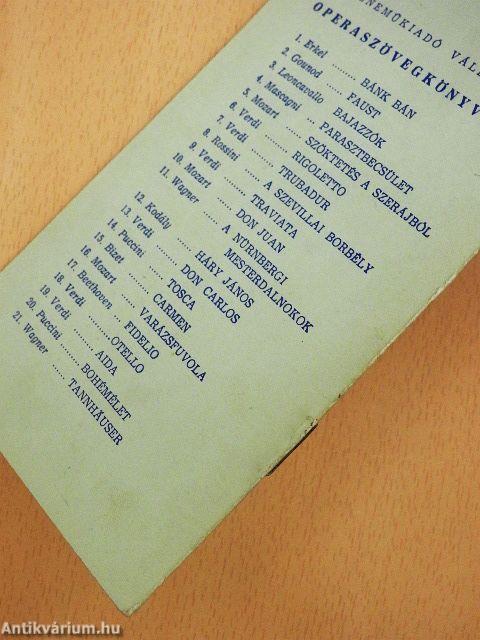 NEMŰKIADÓ VÁLL
OPERASZÖVEGKÖNYV
1. Erkel ........ BÁNK BÁN
2. Gounod ..... FAUST
3. Leoncavallo BAJAZZÓK
4. Mascagni ... PARASZTBECSÜLET
5. Mozart ..... SZÖKTETÉS A SZERÁJBÓL
6. Verdi ....... RIGOLETTO
7. Verdi ....... TRUBADUR
8. Rossini ..... A SZEVILLAI BORBÉLY
9. Verdi ....... TRAVIATA
10. Mozart ..... DON JUAN
11. Wagner ..... A NÜRNBERGI
MESTERDALNOKOK
12. Kodály ..... HÁRY JÁNOS
13. Verdi ...... DON CARLOS
14. Puccini .... TOSCA
15. Bizet ...... CARMEN
16. Mozart ..... VARÁZSFUVOLA
17. Beethoven ... FIDELIO
18. Verdi ...... OTELLO
19. Verdi ...... AIDA
20. Puccini .... BOHÉMÉLET
21. Wagner .... TANNHÄUSER
Antikvárium.hu